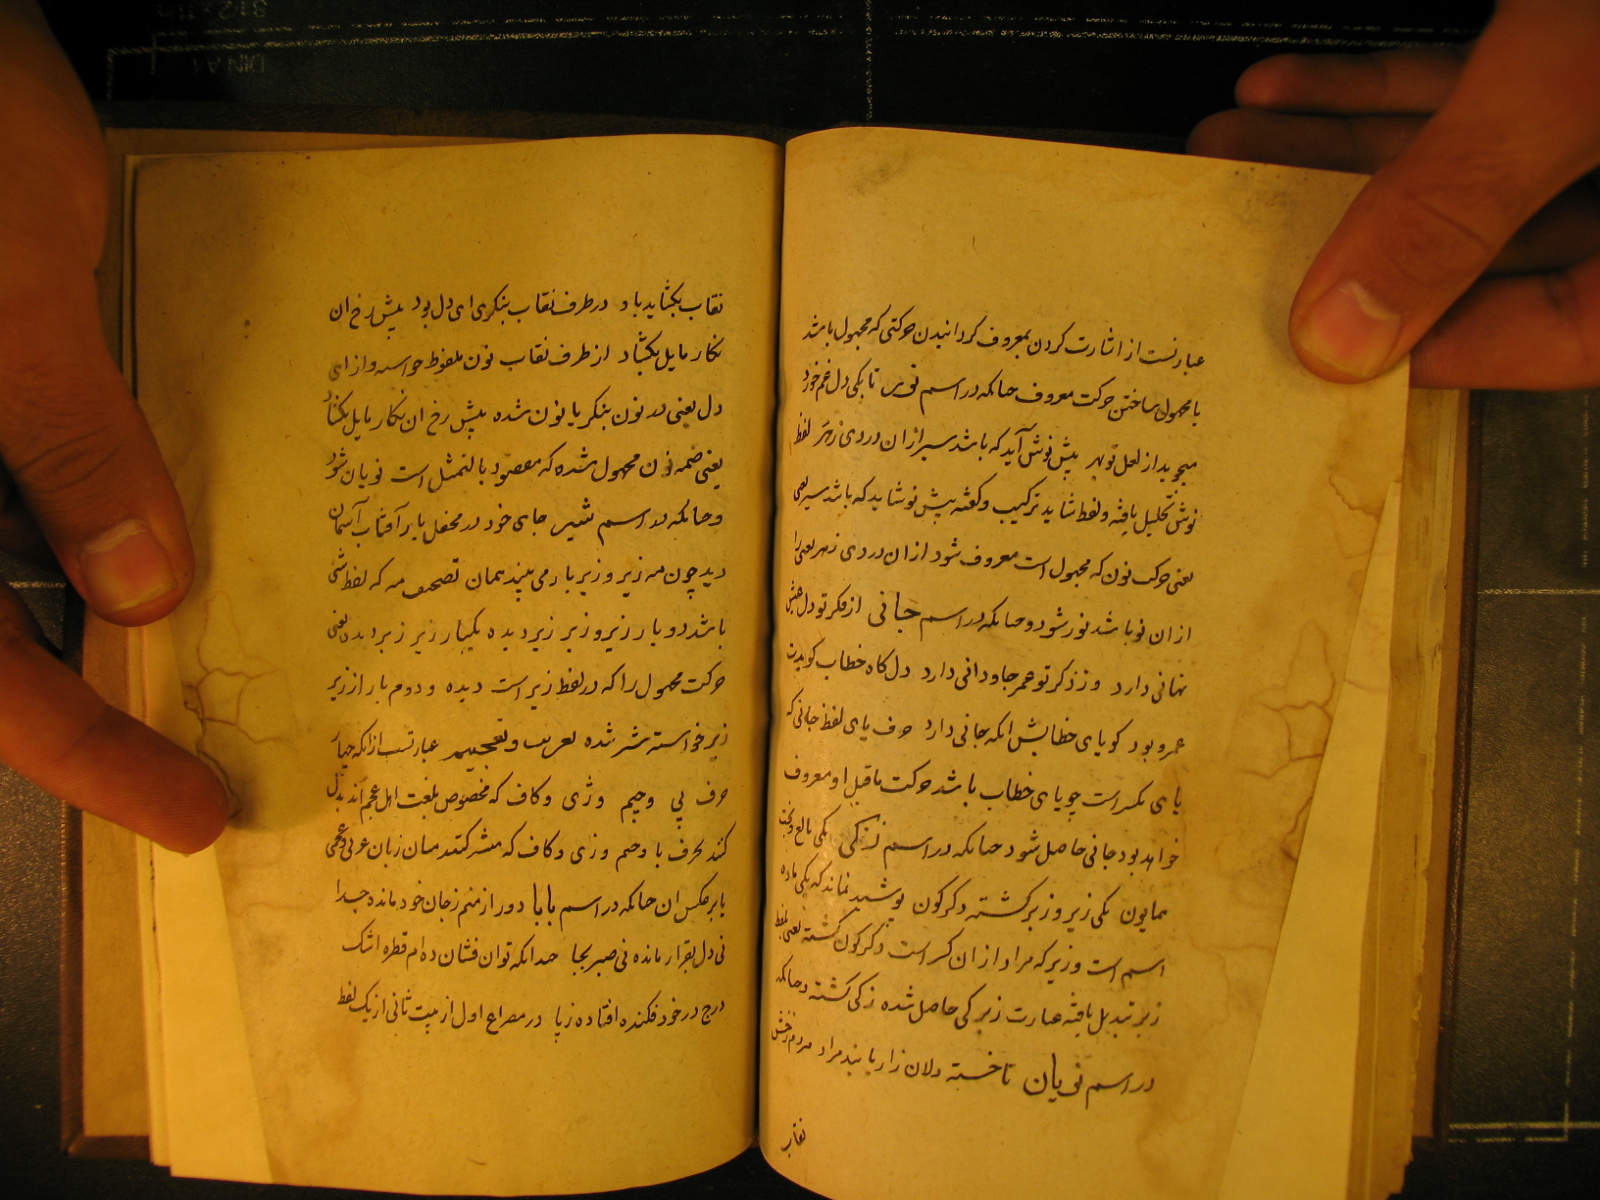 عبارتست از اشارت کردن بمعروف گردانیدن حرکتی که مجهول باشد
یا مجهول ساختن حرکت معروف چنانکه در اسم نویر تا یکی دل غم خورد
میجوید از لعل تو بهر پیش نوش آید که باشد سیر ازان دردی زهر لفظ
نوش تحلیل یافته و لفظ شاید ترکیب و کفته پیش نو شاید که باشد سیر یعنی
یعنی حرکت نون که مجهول است معروف شود ازان دردی زهر یعنی را
ازان نو باشد نور شود و چنانکه در اسم جانی از فکر تو دل عیش
نهانی دارد وز ذکر تو عمر جاودانی دارد دل کاه خطاب کویدت
عمر و بود کویای خطابش انکه جانی دارد حرف یای لفظ جانی که
یای نکس است چو یای خطاب باشد حرکت ماقبل او معروف
خواهد بود جانی حاصل شود چنانکه در اسم زنکی یکی طالع و بخت
همایون یکی زیر و زبر کشته دکرکون پوشید نماند که یکی ماده
اسم است و زیر که مراد ازان کسر است دکرکون کشته یعنی بلفظ
زبر تبدیل یافته عبارت زبر کی حاصل شده زکی کشته و چنانکه
در اسم نی یان تا خسته دلان زار یابند مراد مردم زرخش
نقاب
نقاب بکشاید باد در طرف نقاب بنکری ای دل بود پیش رخ ان
نکار مایل بکشاد از طرف نقاب نون ملفوظ خواسته و از ای
دل یعنی در نون بنکر یا نون شده پیش رخ ان نکار مایل بکشاد
یعنی ضمه نون مجهول شده که مقصود بالتمثیل است نویان شود
و چنانکه در اسم شیر جای خود در محفل یابر آفتاب آسمان
دید چون مه زیر و زیر بار می بیند همان تصحیف مه که لفظ شی
باشد دو بار زیر و زبر زیر دیده یکبار زیر زبر دیده یعنی
حرکت مجهول را که در لفظ زیر است دیده و دوم بار از زیر
زبر خواسته شیر شده تعریب و تعجیم عبارتست از انکه چهار
حرف پی و چیم و ژی و کاف که مخصوص بلغت اهل عجم اند بدل
کنند بحرف با و جیم و زی و کاف که مشترکند میان زبان عربی و عجمی
یا بر عکس ان چنانکه در اسم بابا دور از صنم ز جان خود مانده جدا
نی دل بقرار مانده نی صبر بجا چندانکه توان فشان ده ام قطره اشک
درج در خود فکنده افتاده ز پا در مصراع اول از بیت ثانی از یک لفظ